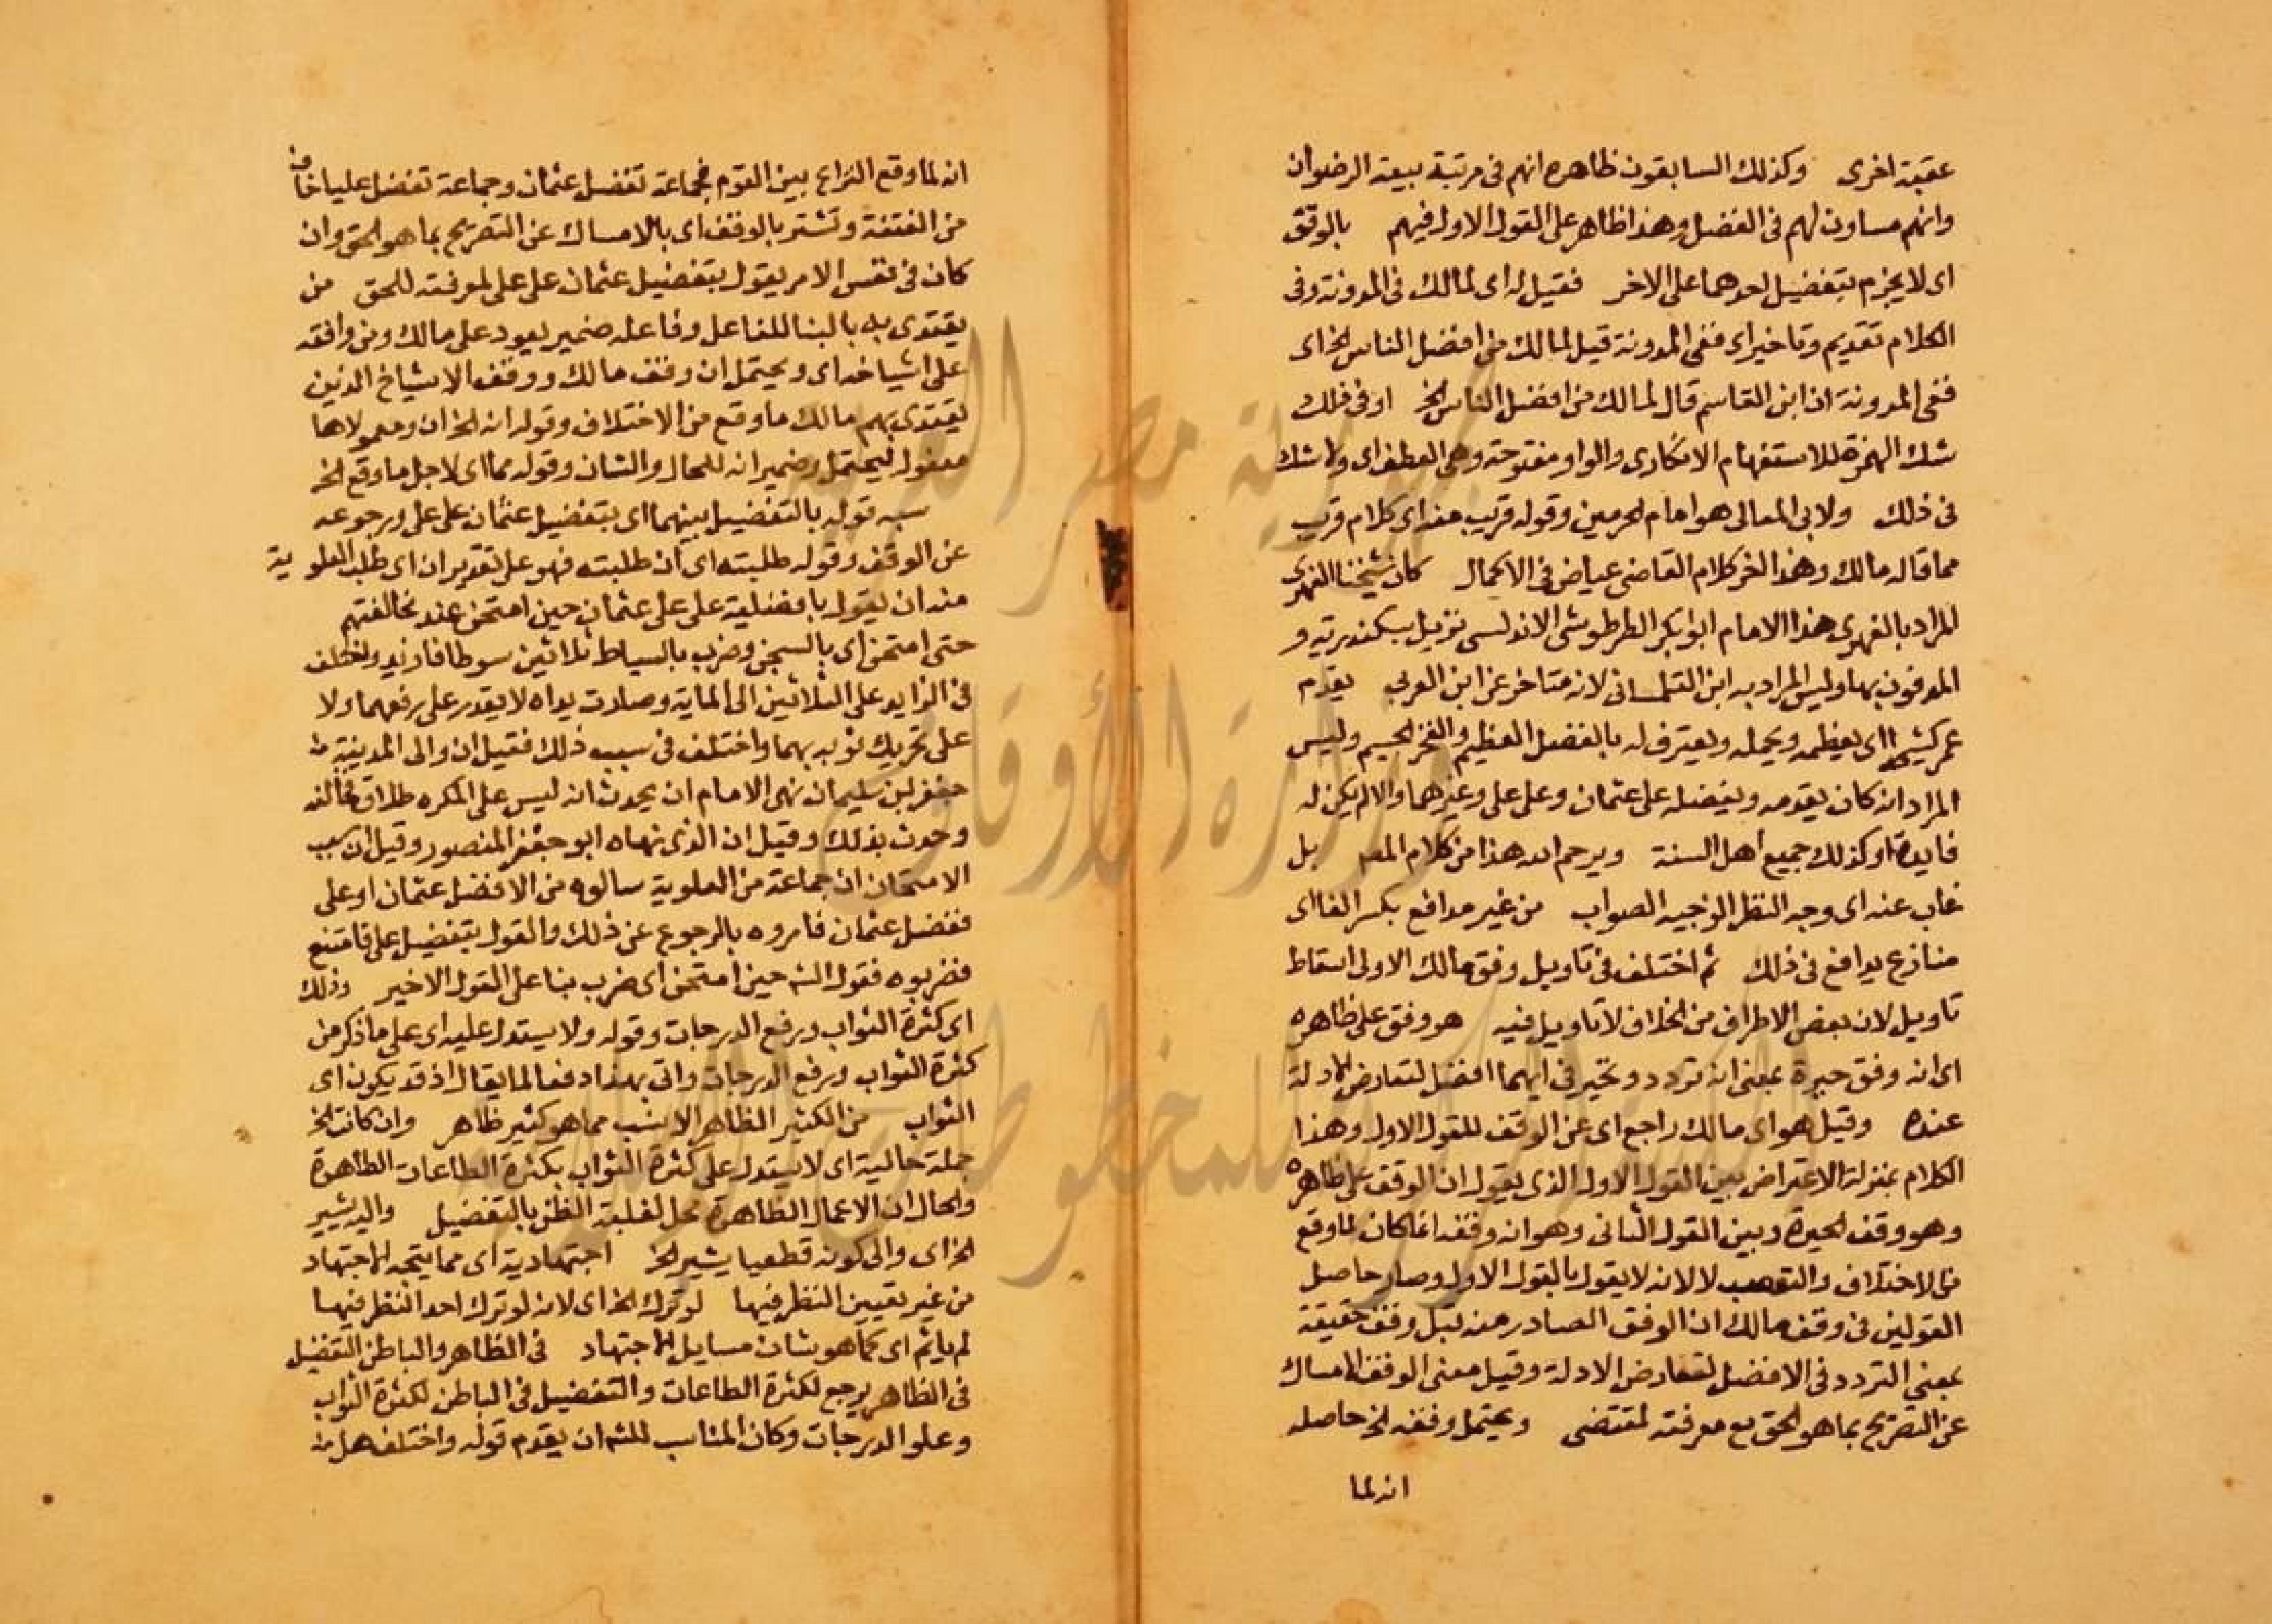 عقبة اخرى وكذلك السابقون ظاهره انهم فى مرتبة بيعة الرضوان
وانهم مساوون لهم فى الفضل وهذا ظاهر على القول الاول فيهم بالوقق
اى لا يجزم بتفضيل احدهما على الاخر فقيل له اى لمالك فى المدونة وفى
الكلام تقديم وتاخير اى ففى المدونة قيل لمالك من افضل الناس الخ اى
ففى المدونة ان ابن القاسم قال لمالك من افضل الناس الخ او فى ذلك
شك الهمزة للاستفهام الانكارى والواو مفتوحة وهى العطف اى ولا شك
فى ذلك ولابى المعالى هو امام الحرمين وقوله قريب منه اى كلام قريب
مما قاله مالك وهذا اخر كلام القاضى عياض فى الاكمال كان شيخنا الفهرى
المراد بالفهرى هذا الامام ابو بكر الطرطوشى الاندلسى نزيل سكندرية و
المدفون بها وليس المراد به ابن التلمسانى لانه متاخر عن ابن العربى يقدم
عمر كثيرا اى يعظمه ويجمله ويعترف له بالفضل العظيم والفخر الجسيم وليس
المراد انه كان يقدمه ويفضله على عثمان وعلى على وغيرهما والا لم يكن له
فايدة اوكذلك جميع أهل السنة ويرحم الله هذا من كلام المص بل
غاب عنه اى وجه النظر الوجيه الصواب من غير مدافع بكسر الفا اى
منازع يدافع فى ذلك ثم اختلف فى تاويل وفق مالك الاولى اسقاط
تاويل لان بعض الاطراف من الخلاف لا تاويل فيه هو وفق على ظاهره
اى انه وفق حيرة بمعنى انه تردد وتحير فى ايهما افضل لتعارض الادلة
عنده وقيل هو اى مالك راجع اى عن الوقف للقول الاول وهذا
الكلام بمنزلة الاعتراض بين القول الاول الذى يقول ان الوقف على ظاهره
وهو وقف الحيرة وبين القول الثانى وهو انه وقفه انما كان لما وقع
من الاختلاف والتعصب لا لانه لا يقول بالقول الاول وصار حاصل
القولين فى وقف مالك ان الوفق الصادر منه قبل وقف حقيقة
بمعنى التردد فى الافضل لتعارض الادلة وقيل معنى الوقف الامساك
عن التصريح بما هو الحق مع معرفته لمقتضى ويحتمل وقفه الخ حاصله
انه لما
انه لما وقع النزاع بين القوم فجماعة تفضل عثمان وجماعة تفضل عليا خاف
من الفتنة وتستر بالوقف اى بالامساك عن التصريح بما هو الحق وان
كان فى نفس الامر يقول بتفضيل عثمان على على لمعرفته للحق من
يقتدى به بالبنا للفاعل وفاعله ضمير يعود على مالك ومن وافقه
على اشياخه اى ويحتمل ان وقف مالك ووقف الاشياخ الذين
يقتدى بهم مالك ما وقع من الاختلاف وقوله انه الخ ان ومعمولاها
معمول ليحتمل وضمير انه للحال والشان وقوله مما اى لاجل ما وقع الخ
سبه قوله بالتفضيل بينهما اى بتفضيل عثمان على على ورجوعه
عن الوقف وقوله طلبته اى ان طلبته فهو على تقدير ان اى طلب العلوية
منه ان يقول بافضلية على على عثمان حين امتحن عند مخالفتهم
حتى امتحن اى بالسجن وضرب بالسياط ثلاثين سوطا فازيد واختلف
فى الزايد على الثلاثين الى الماية وصارت يداه لا يقدر على رفعهما ولا
على تحريك ثوبه بهما واختلف فى سبب ذلك فقيل ان والى المدينة
جعفر بن سليمان نهى الامام ان يحدث انه ليس على المكره طلاق فخالفه
وحدث بذلك وقيل ان الذى نهاه ابو جعفر المنصور وقيل ان سبب
الامتحان ان جماعة من العلوية سالوه من الافضل عثمان او على
ففضل عثمان فامروه بالرجوع عن ذلك والقول بتفضيل على فامتنع
فضربوه فقول الشه حين امتحن اى ضرب بنا على القول الاخير وذلك
اى كثرة الثواب ورفع الدرجات وقوله ولا يستدل عليه اى على ما ذكر من
كثرة الثواب ورفع الدرجات واتى بهذا دفعا لما يقال اذ قد يكون اى
الثواب من الكثير الظاهر الانسب مما هو كثير ظاهر وان كانت الخ
جملة حالية اى لا يستدل على كثرة الثواب بكثرة الطاعات الظاهرة
والحال ان الاعمال الظاهرة محل لغلبة الظن بالتفضيل واليه يشير
الخ اى والى كونه قطعيا يشير الخ اجتهادية اى مما يتجه الاجتهاد
من غير تعيين النظر فيها لو ترك الخ اى لانه لو ترك احد النظر فيها
لم ياثم اى كما هو شان مسايل الاجتهاد فى الظاهر والباطن التفضيل
فى الظاهر يرجع لكثرة الطاعات والتفضيل فى الباطن لكثرة الثواب
وعلو الدرجات وكان المناسب للشه ان يقدم قوله واختلف هل